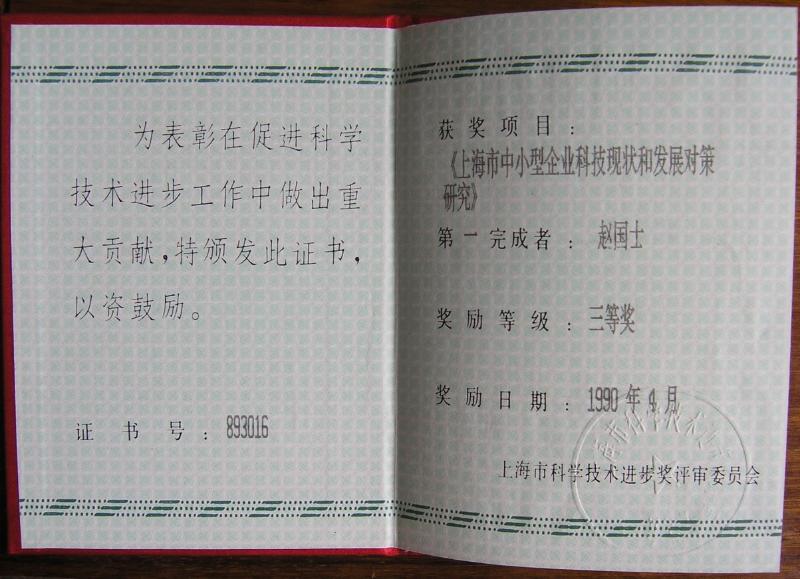 为表彰在促进科学
技术进步工作中做出重
大贡献，特颁发此证书，
以资鼓励。
证书号：893016
获奖项目：
《上海市中小型企业科技现状和发展对策
研究》
第一完成者：赵国士
奖励等级：三等奖
奖励日期：1990年4月
上海市科学技术进步奖评审委员会